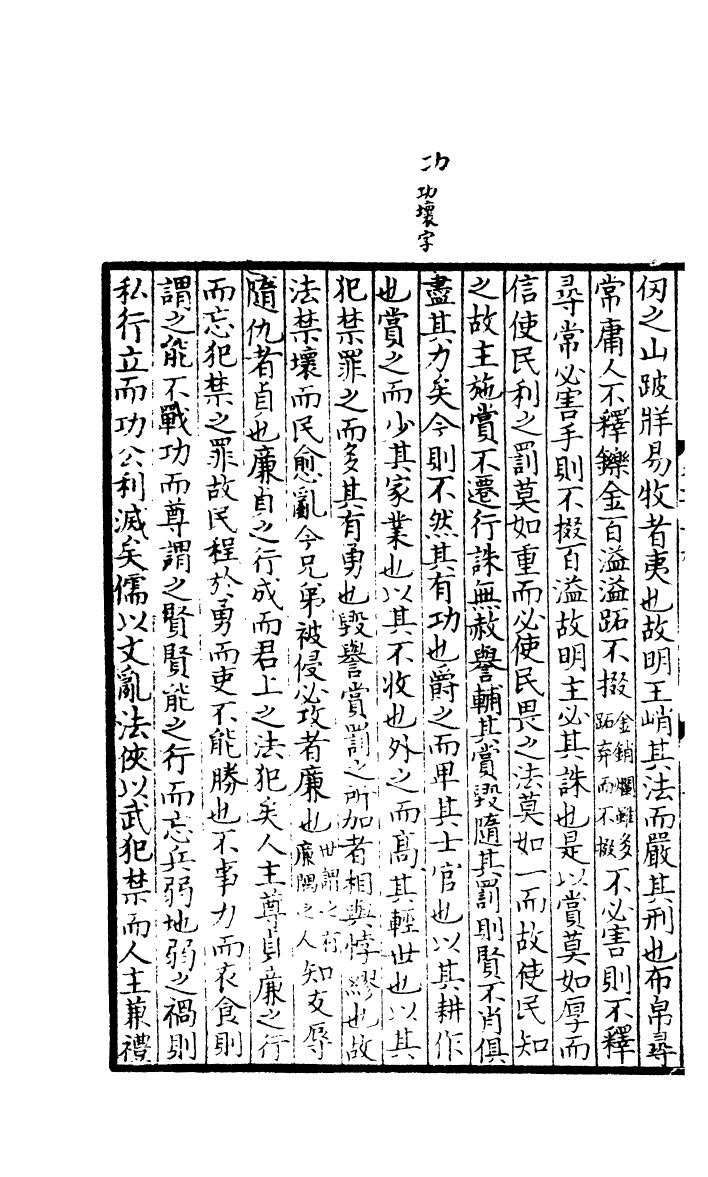 㓛
功壞字
仞之山跛牂易牧者夷也故明王峭其法而嚴其刑也布帛尋
常庸人不釋鑠金百溢溢跖不掇金銷爛雖多跖弃而不掇不必害則不釋
尋常必害手則不掇百溢故明主必其誅也是以賞莫如厚而
信使民利之罰莫如重而必使民畏之法莫如一而故使民知
之故主施賞不遷行誅無赦譽輔其賞毀隨其罰則賢不肖俱
盡其力矣今則不然其有功也爵之而甲其士官也以其耕作
也賞之而少其家業也以其不收也外之而高其輕世也以其
犯禁罪之而多其有勇也毀譽賞罰之所加者相與悖繆也故
法禁壞而民愈亂今兄弟被侵必攻者廉也世謂之有廉隅之人知友辱
隨仇者貞也廉貞之行成而君上之法犯矣人主尊貞廉之行
而忘犯禁之罪故民程於勇而吏不能勝也不事力而衣食則
謂之能不戰功而尊謂之賢賢能之行而忘兵弱地弱之禍則
私行立而功公利滅矣儒以文亂法俠以武犯禁而人主兼禮